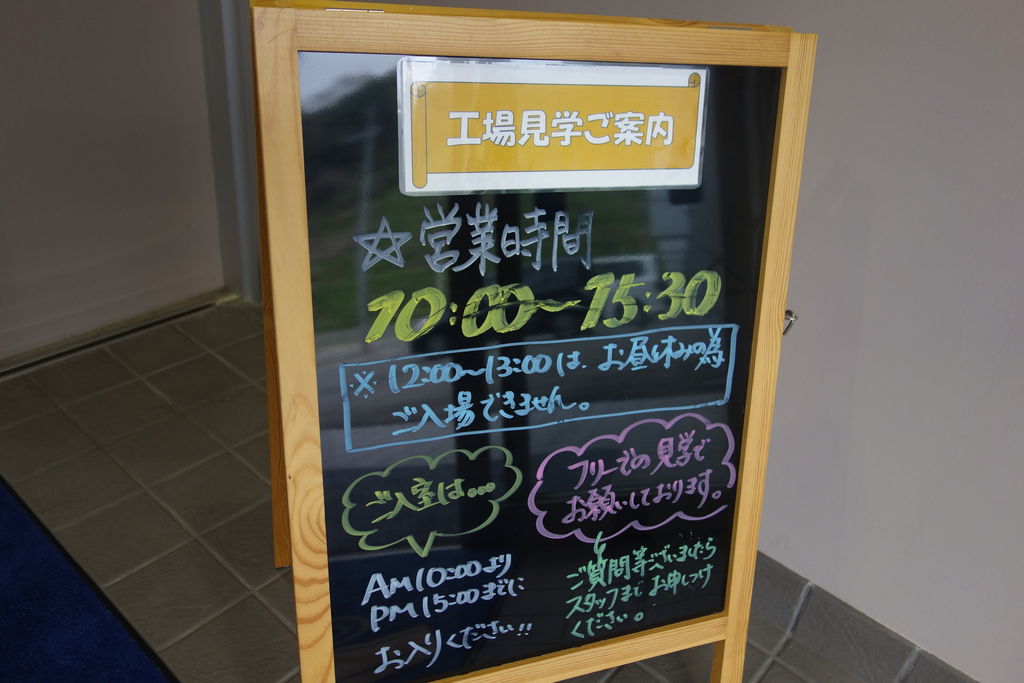 工場見学ご案内
☆営業時間
10:00～15:30
※12:00～13:00は、お昼休みの為
ご入場できません。
ご入室は...
フリーでの見学で
お願いしております。
AM10:00より
PM15:00までに
お入りください!!
ご質問等ございましたら
スタッフまでお申しつけ
ください。